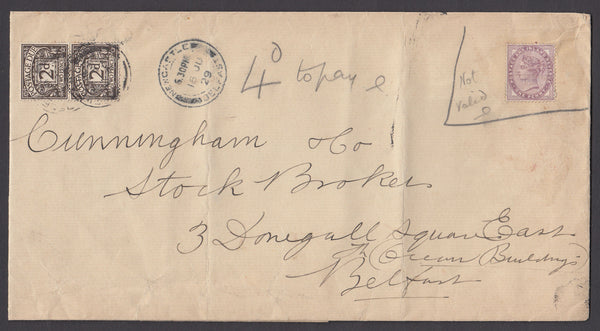 POSTAGE DUE 2d
POSTAGE DUE 2d
NEWCASTLE
5.30PM
18 JU
29
BELFAST
4d to pay
Not
Valid
Cunningham & Co
Stock Broker
3 Donegall Square East
(Ocean Buildings)
Belfast